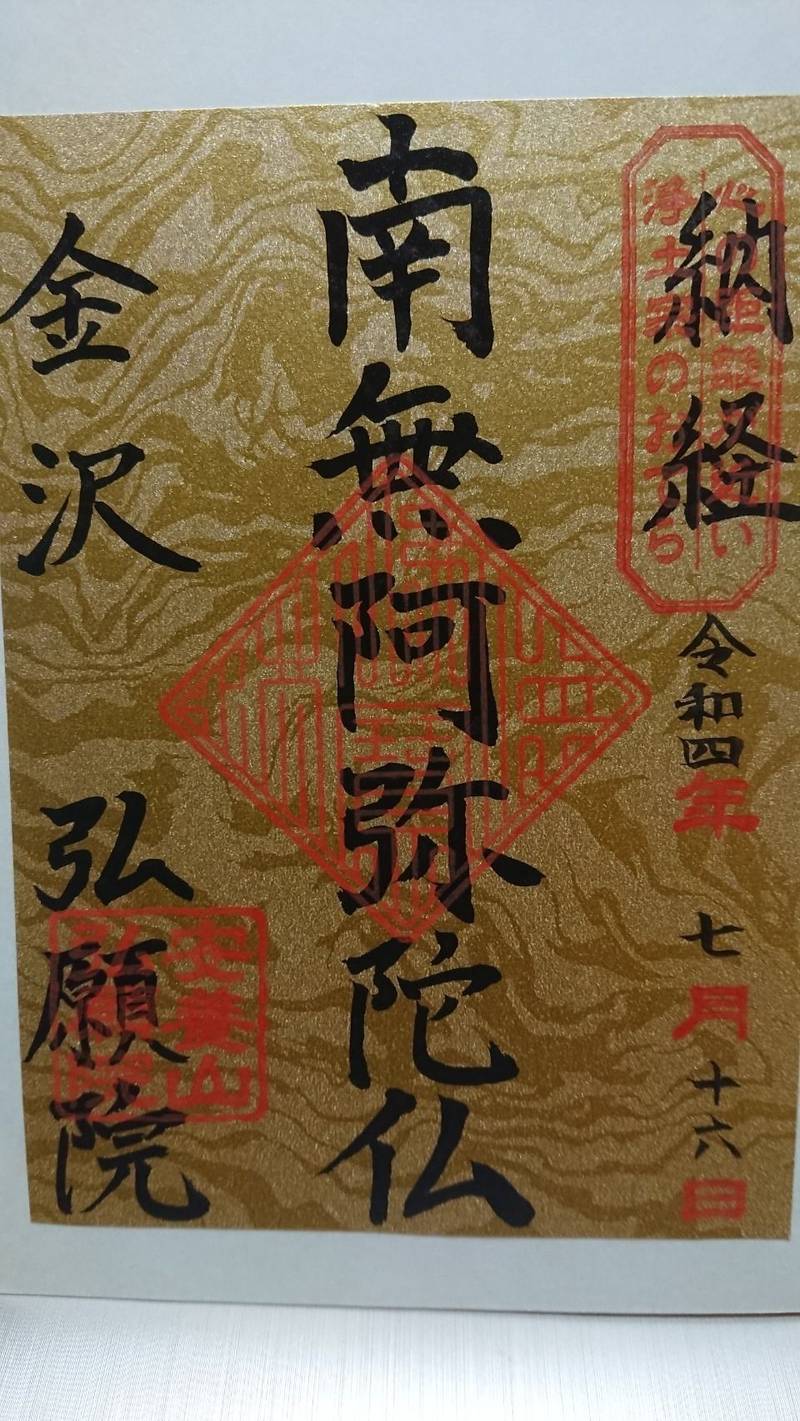 納経
心の避難
浄土宗のおてら
令和四年 七月十六日
南無阿弥陀仏
金沢 弘願院
大美山
弘願院